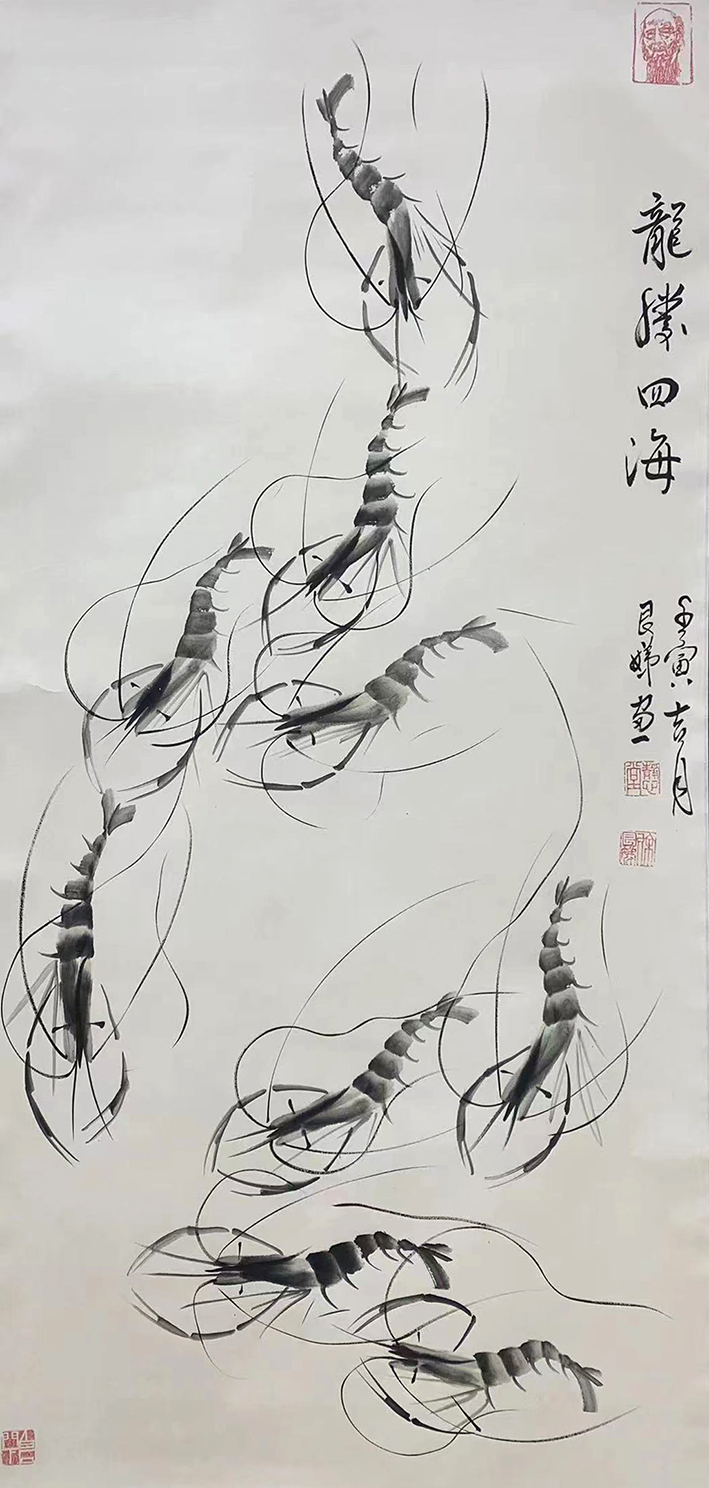 龍騰四海
壬寅吉月
良娣画